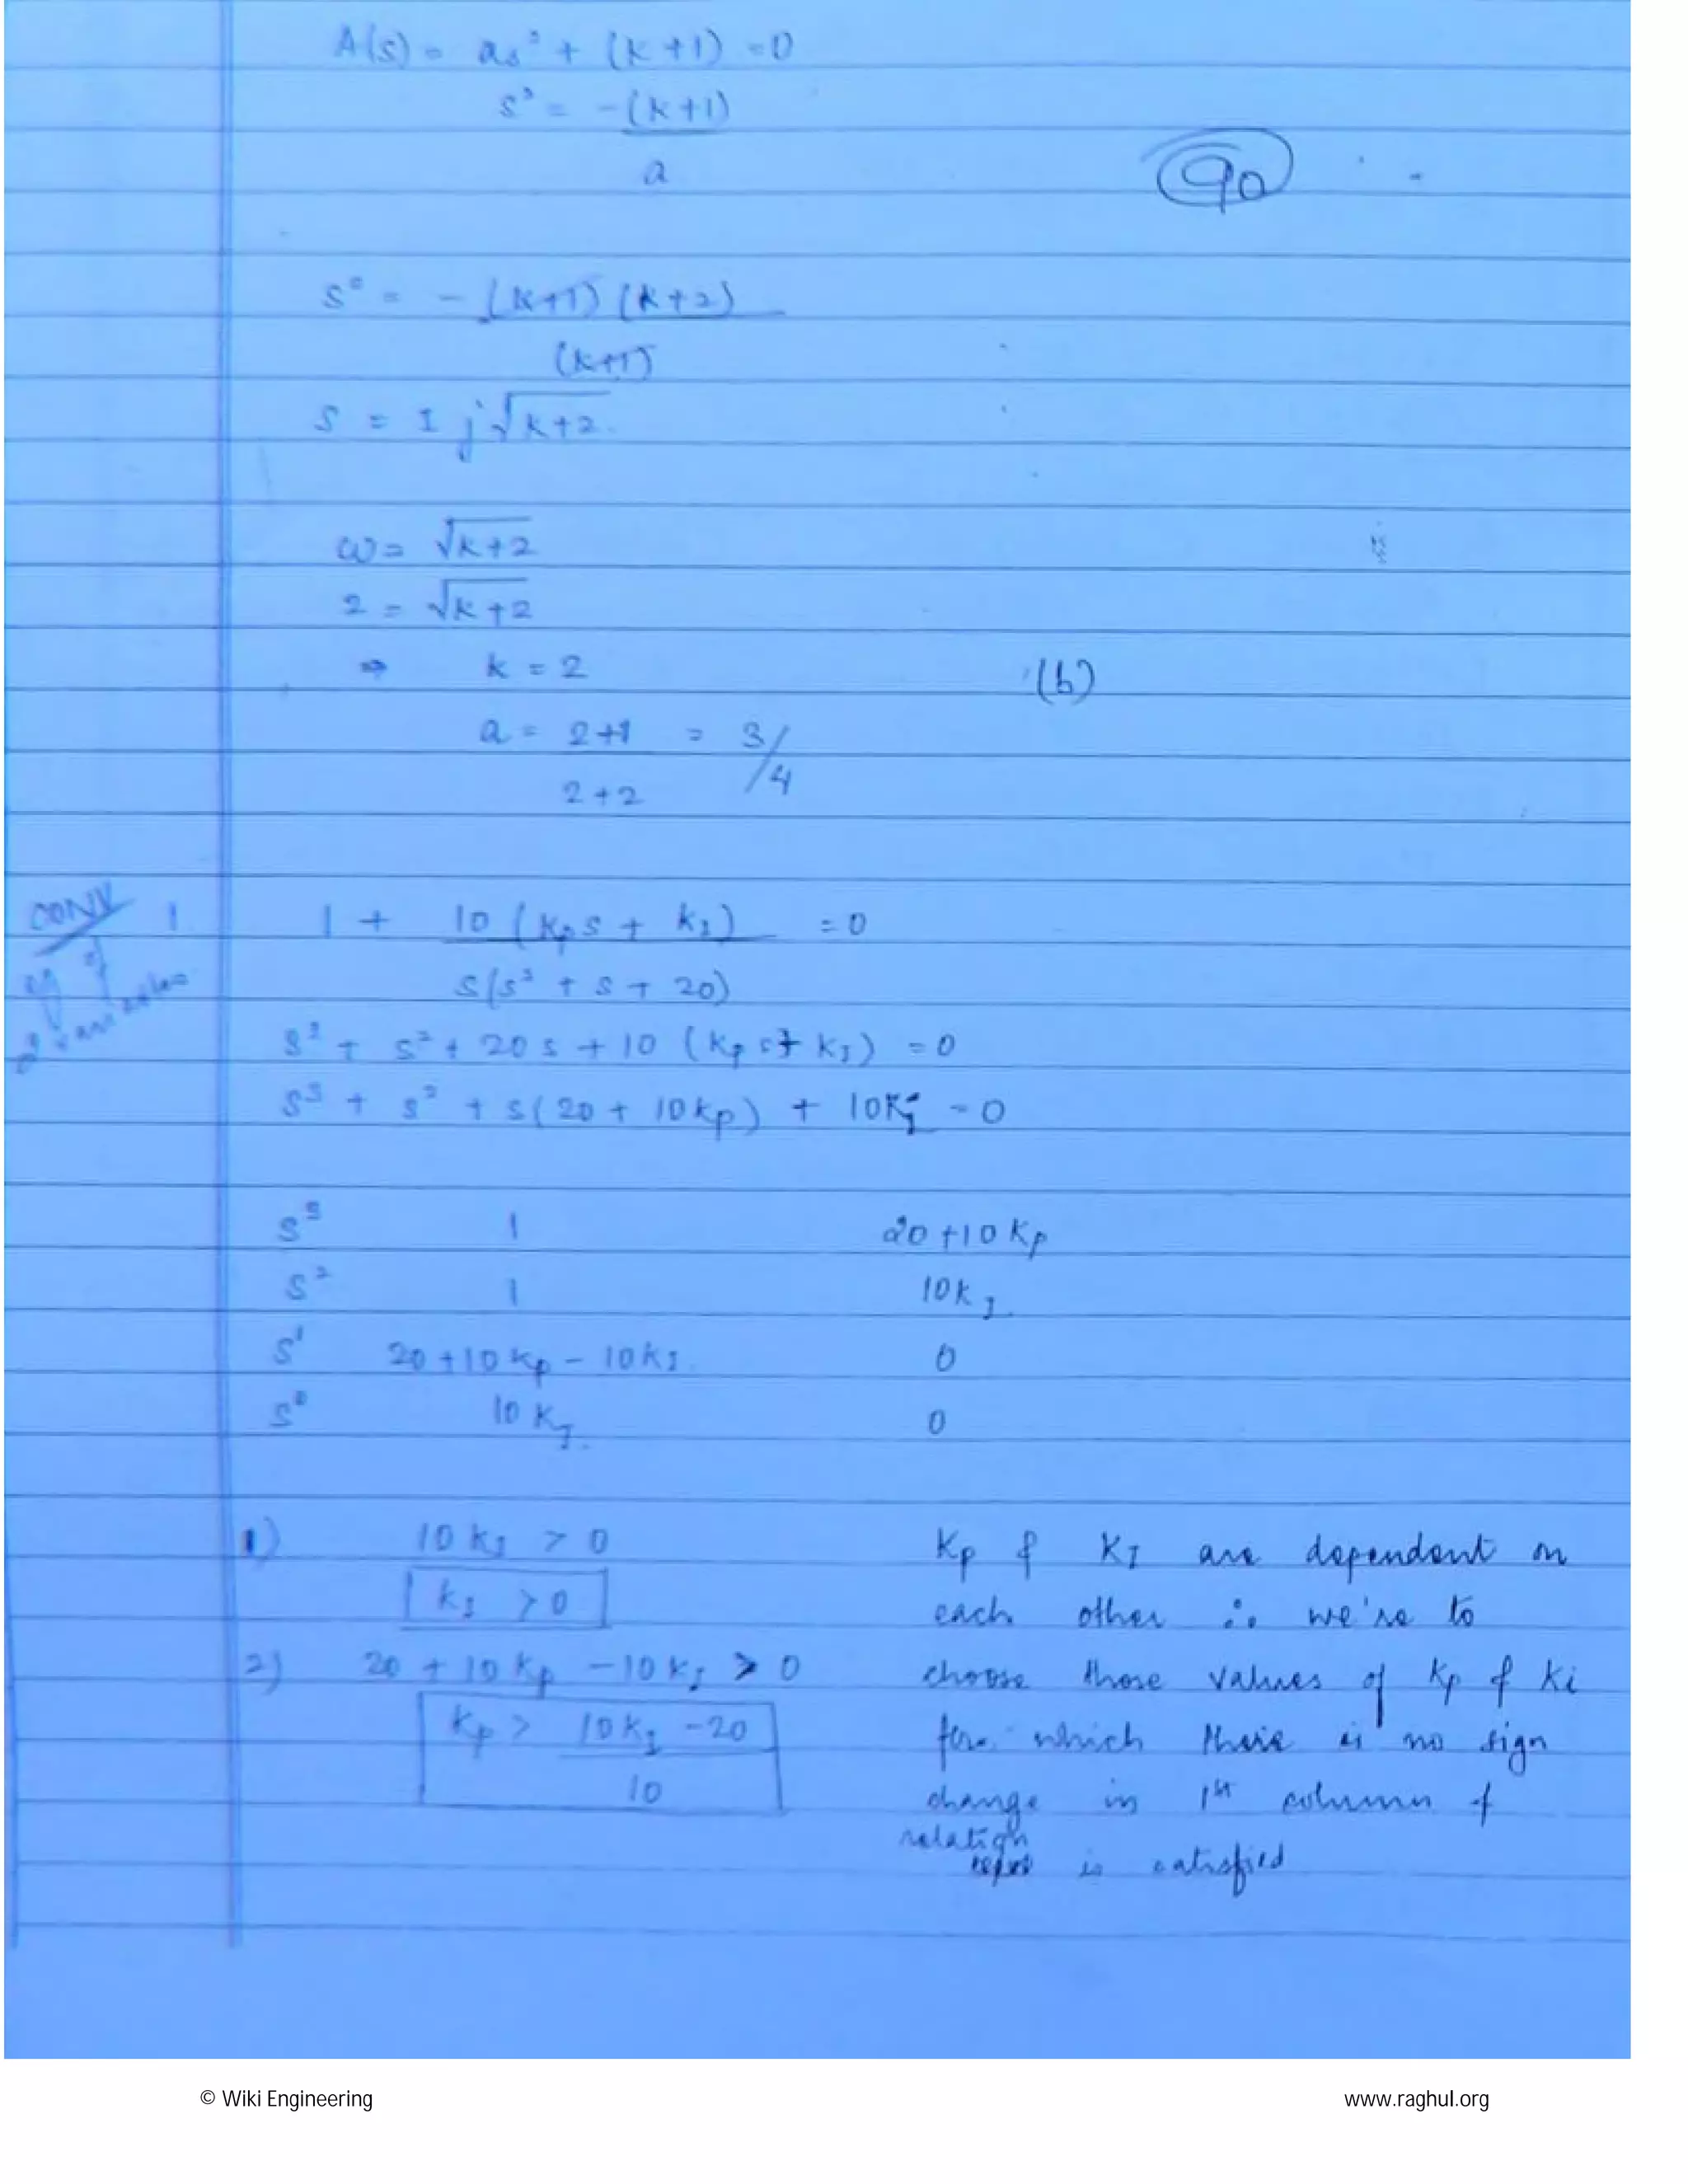 A(s) = as² + (k+1) = 0
s² = -(k+1)
a
90
s² = - (k+1) (k+2)
(k+1)
s = ± j√k+2
ω = √k+2
2 = √k+2
⇒ k = 2 (b)
a = 2+1 = 3/4
2+2
CONV 1
eg of
2 variables
1 + 10 (kps + kI) = 0
s(s² + s + 20)
s³ + s² + 20s + 10 (kp s + kI) = 0
s³ + s² + s(20 + 10kp) + 10Ki = 0
s³ 1 20+10kp
s² 1 10kI
s¹ 20+10kp - 10kI 0
s⁰ 10kI 0
1) 10kI > 0
kI > 0
2) 20 + 10kp - 10kI > 0
kp > 10kI - 20
10
Kp & KI are dependent on
each other ∴ we're to
choose those values of kp & ki
for which there is no sign
change in 1st column &
relation
is satisfied
© Wiki Engineering
www.raghul.org